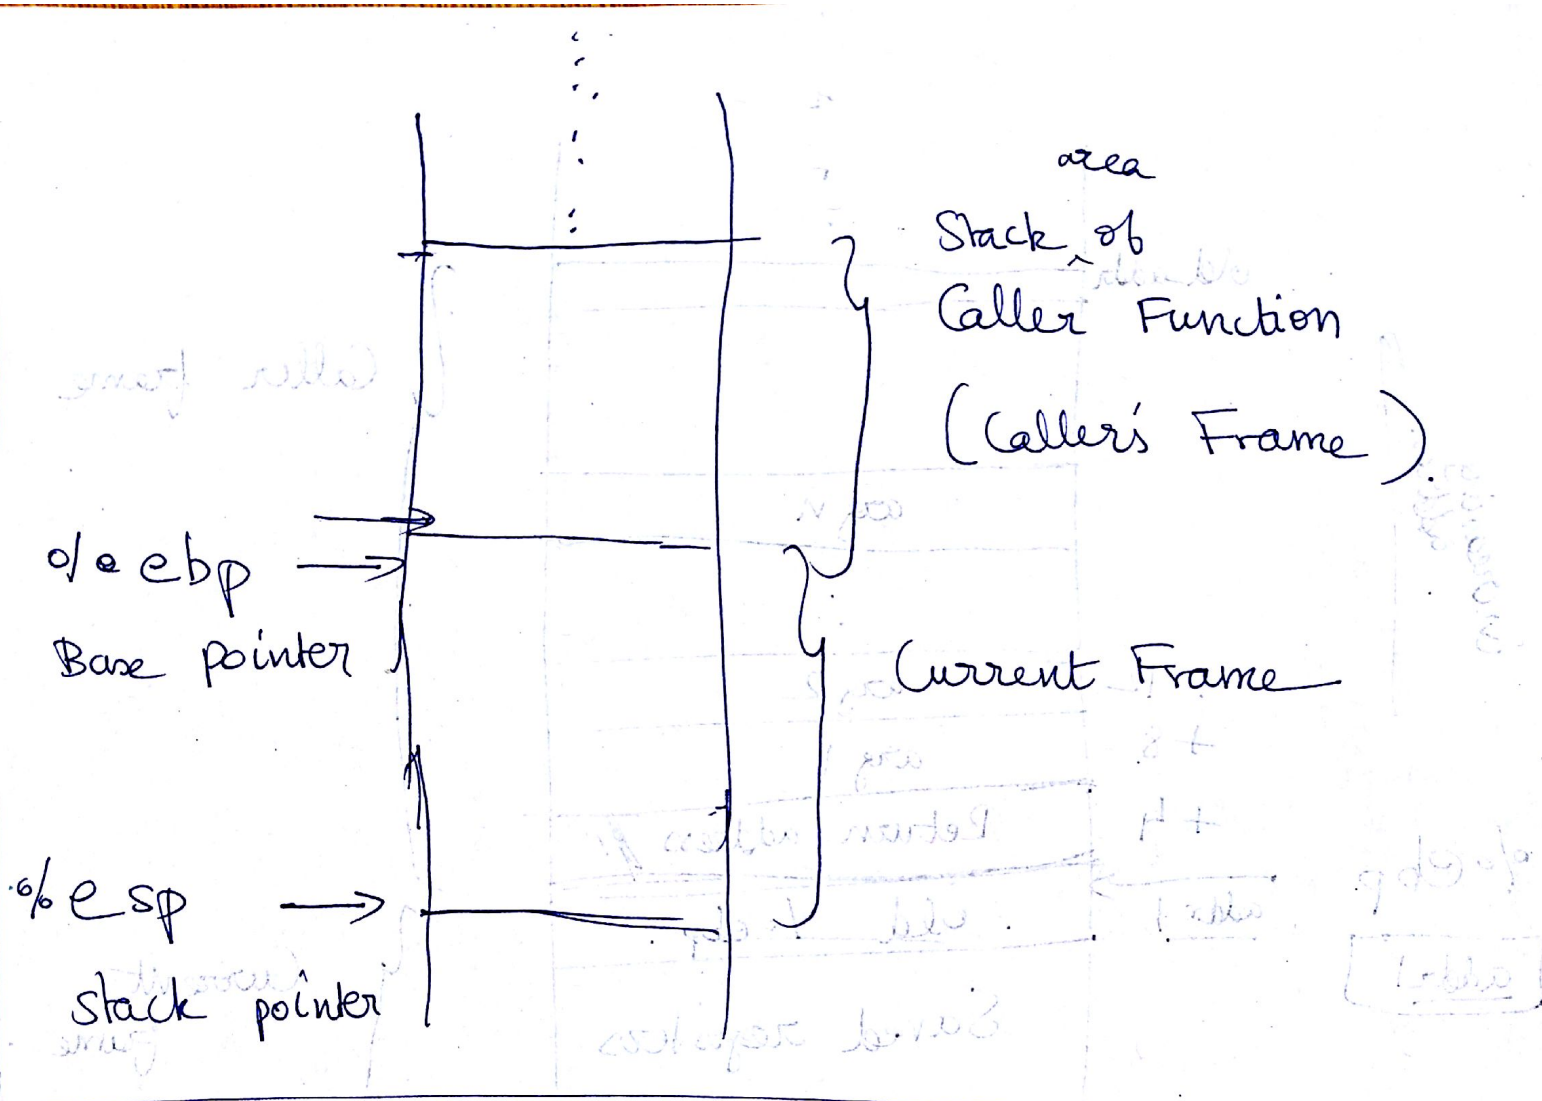 area
Stack ^ of
Caller Function
(Caller's Frame).
%ebp
Base pointer
Current Frame
%esp
Stack pointer